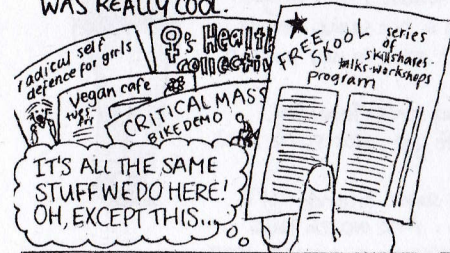 WAS REALLY COOL.
radical self
defence for grrls
♀'s Health
collectiv
vegan cafe
tues-
fri
CRITICAL MASS
BIKE DEMO
★
FREE
SKOOL
series
of
skillshares-
talks-workshops
program
IT'S ALL THE SAME
STUFF WE DO HERE!
OH, EXCEPT THIS...